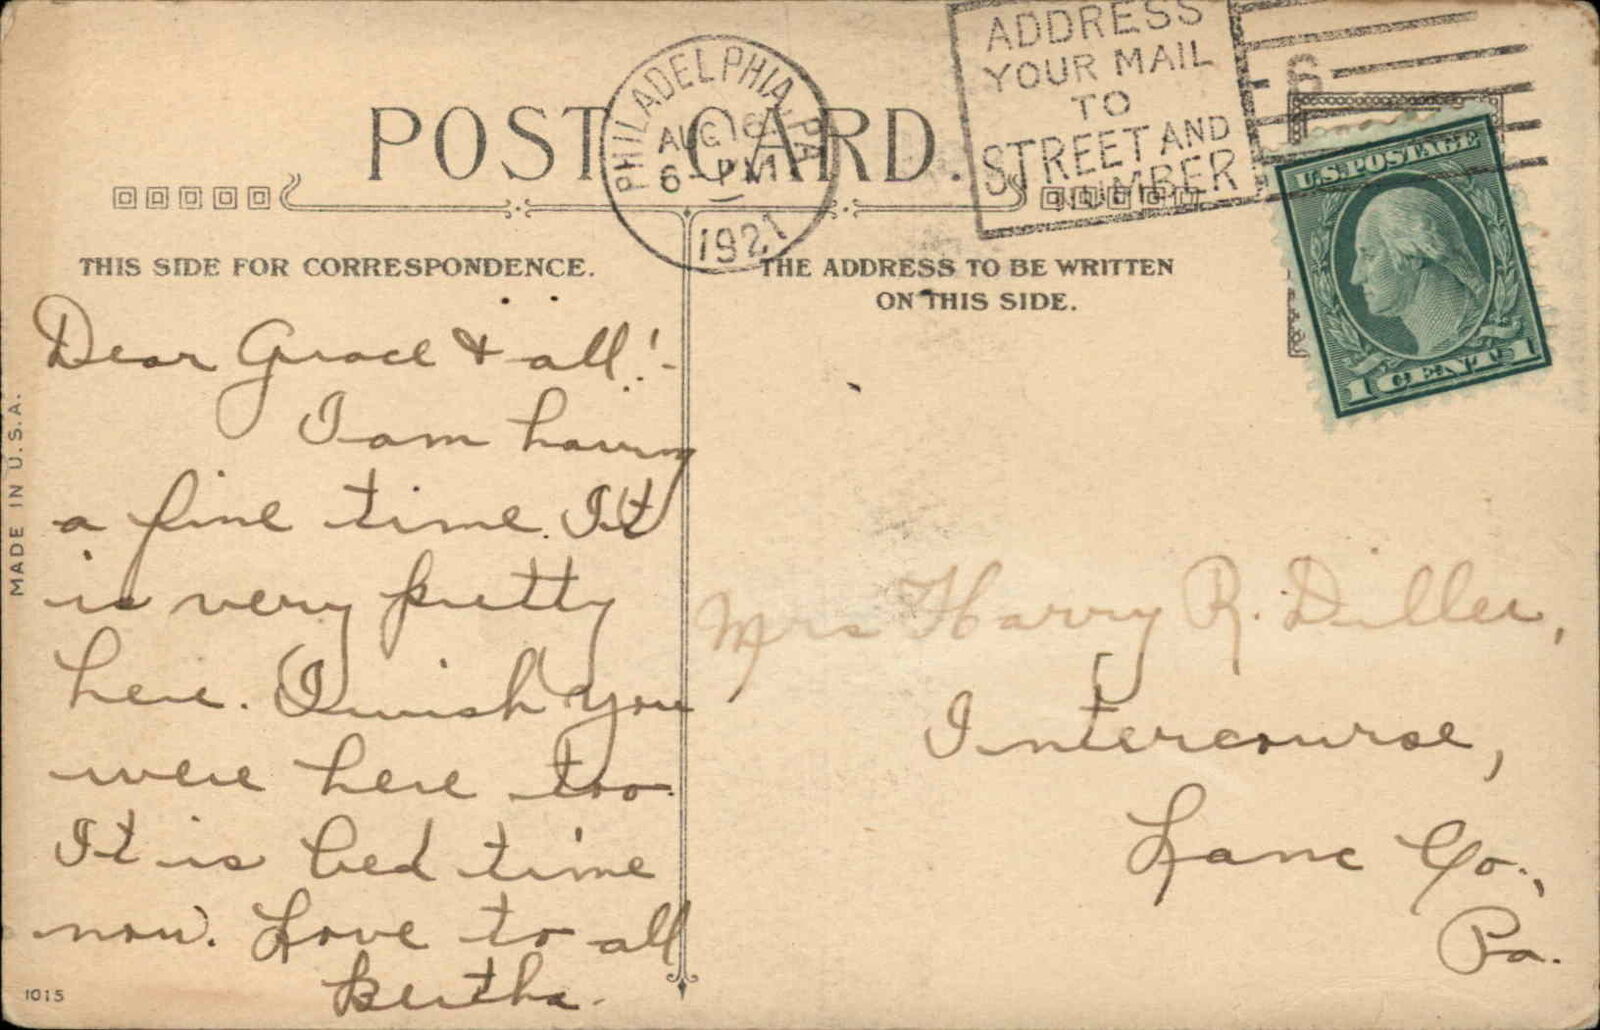 ADDRESS
YOUR MAIL
TO
STREET AND
NUMBER
6
PHILADELPHIA, PA
AUG 16
6 - PM
1921
POST CARD.
U.S. POSTAGE
1 CENT 1
THIS SIDE FOR CORRESPONDENCE.
THE ADDRESS TO BE WRITTEN
ON THIS SIDE.
Dear Grace & all!-
I am having
a fine time. It
is very pretty
here. I wish you
were here too.
It is bed time
now. Love to all
Bertha.
Mrs Harry R. Diller,
Intercourse,
Lanc Co.,
Pa.
MADE IN U.S.A.
1015